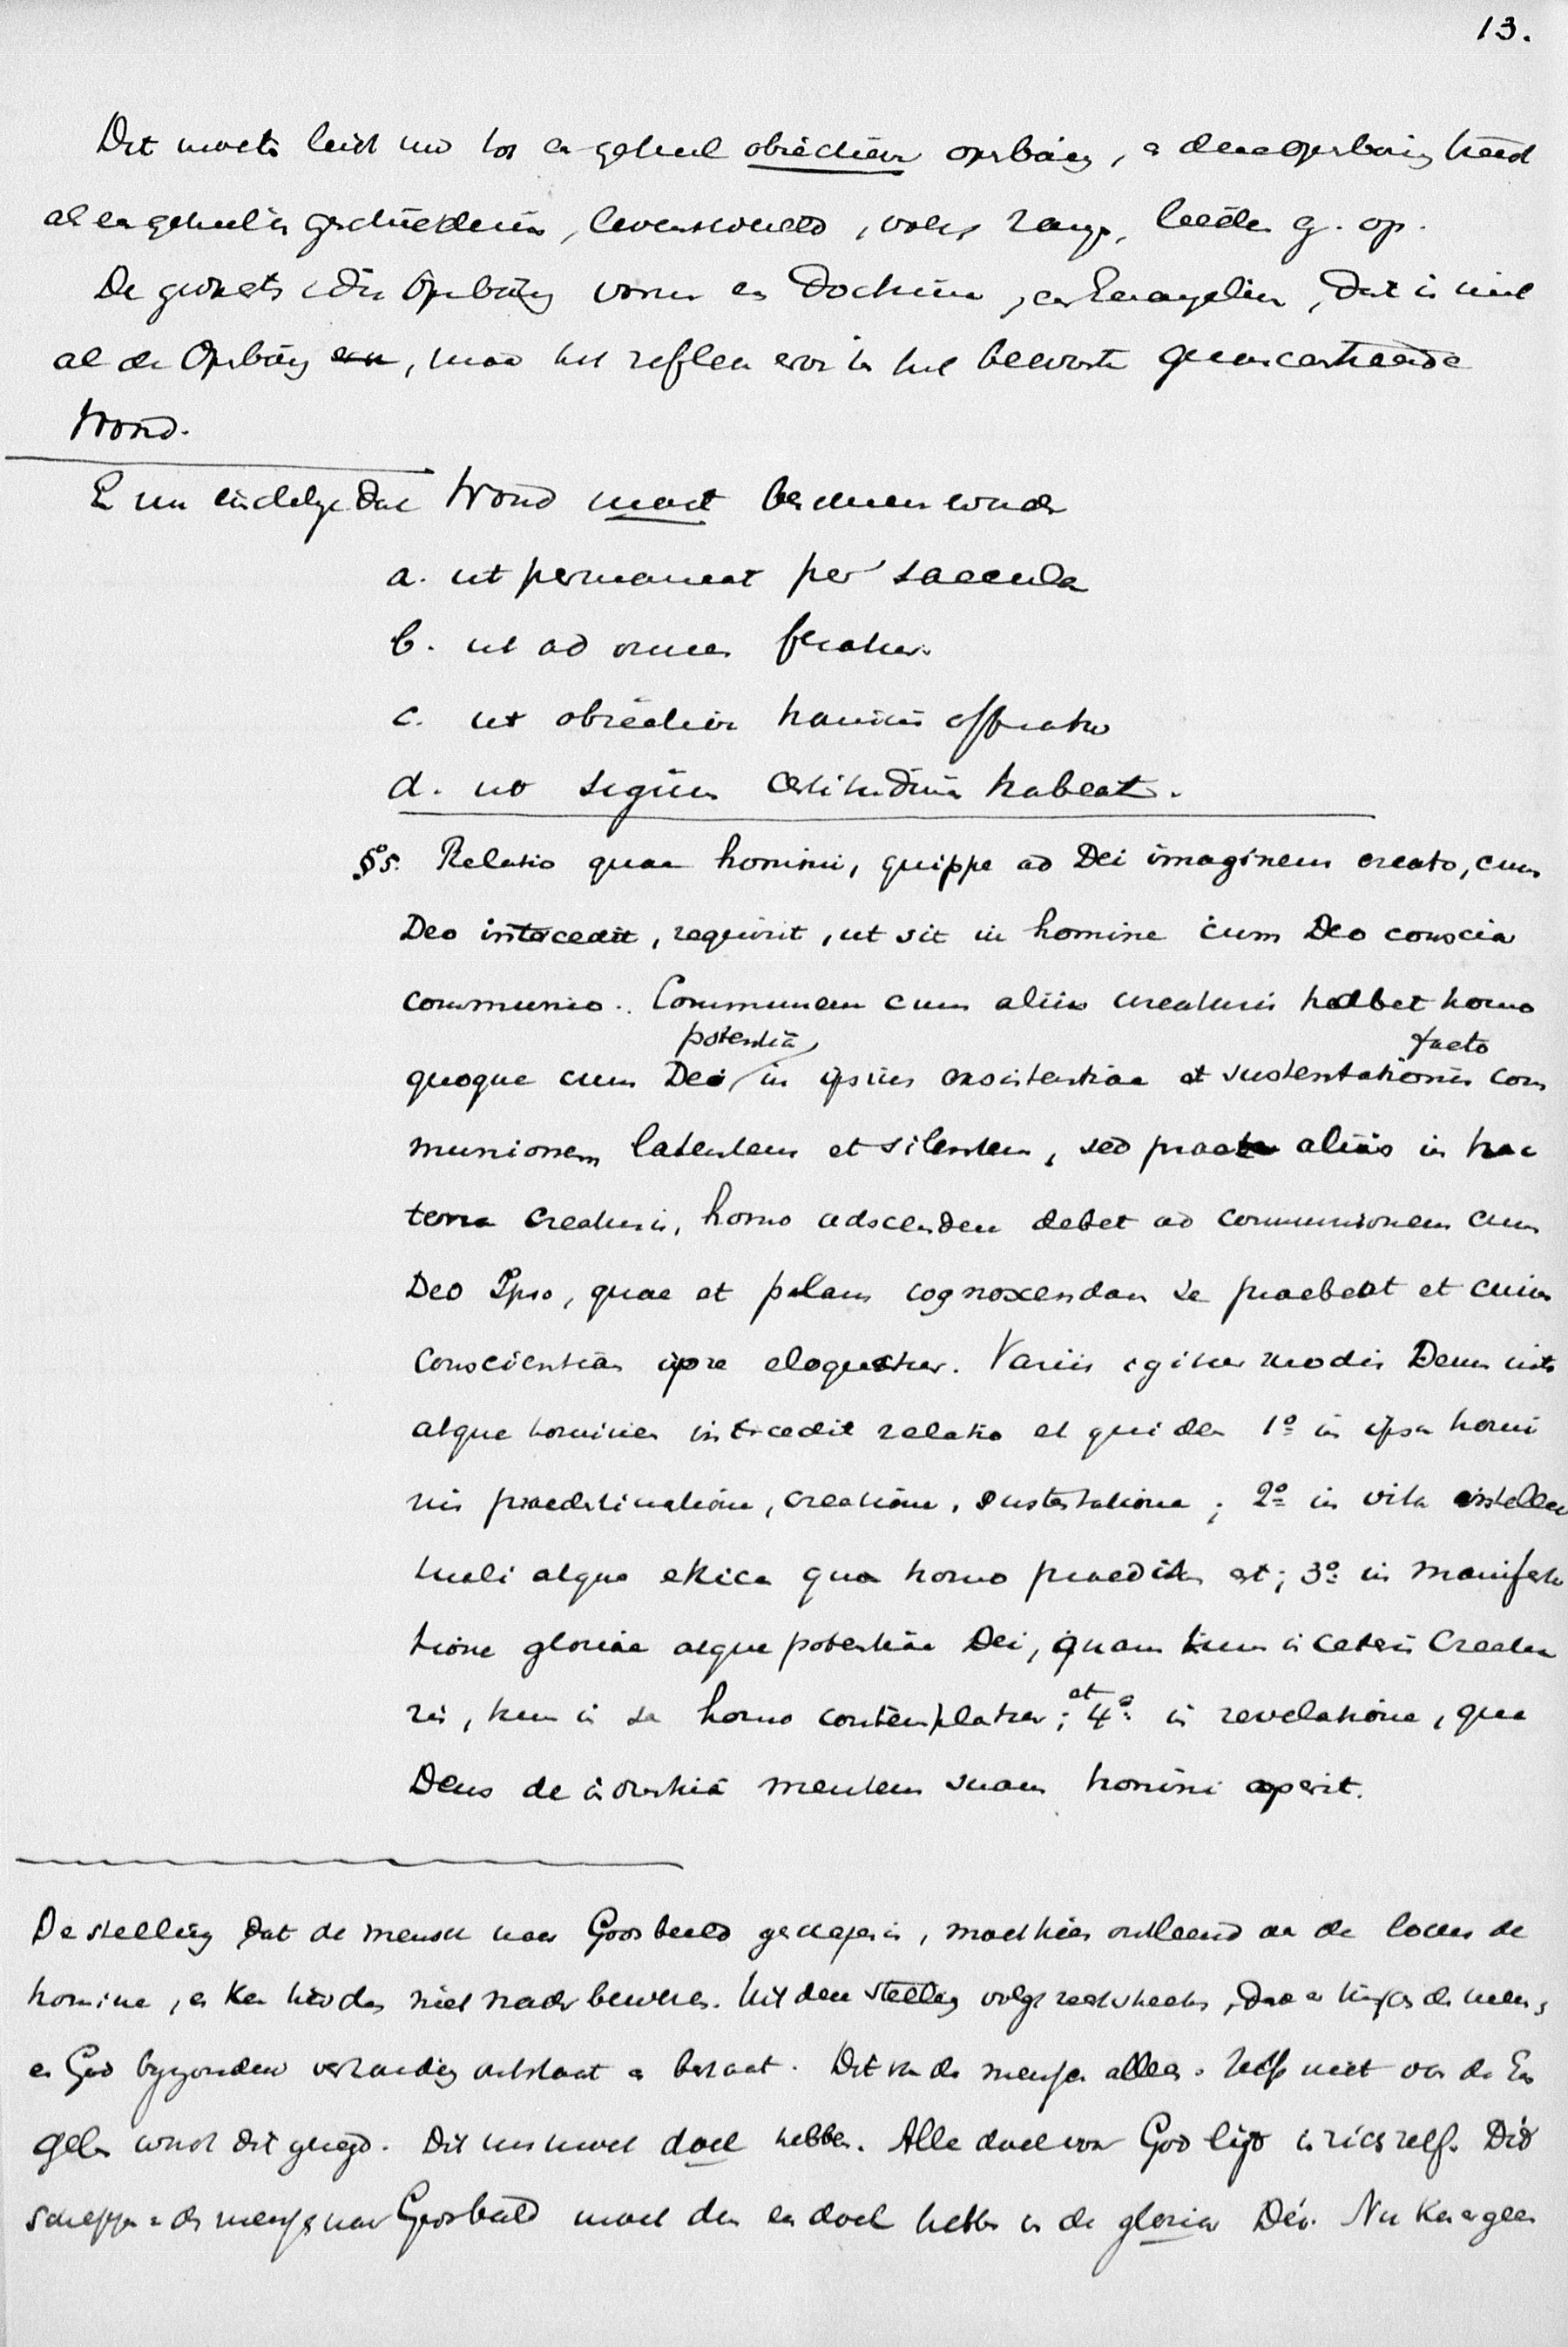 13.
Dit moet leidt nu tot en geheel objectieve openbaring, en deze openbaring treed
al en geheel in geschiedenis, levenswereld, volk, zang, beelden g. op.
De gworts die Openbaring vorm en Doctrina, en Evangelien, dat is niet
al de Openbaring, maar het reflex ervan in het bewuste
Woord.
En nu eindelyk dat Woord moet beschreven worden
a. ut permaneat per saecula
b. ut ad omnes feratur.
c. ut objective hominis offeratur
d. ut signum certitudinis habeat.
§5. Relatio quae homini, quippe ad Dei imaginem creato, cum
Deo intercedit, requirit, ut sit in homine cum Deo conscia
communio. Communem cum aliis creaturis habet homo
potentiâ facto
quoque cum Deo in ipsius existentiae et sustentationis com
munionem latentem et silentem, sed prae aliis in hac
terra creaturis, homo adscendere debet ad communionem cum
Deo Ipso, quae et palam cognoscendam se praebeat et cuius
conscientiam ipse eloquatur. Variis igitur modis Deum inter
atque homines intercedit relatio et quidem 1º in ipsa homi
nis praedestinatione, creatione, sustentatione; 2º in vita intellec
tuali atque ethica qua homo praeditus est; 3º in manifesta
tione gloriae atque potentiae Dei, quam tum in ceteris Creatu
ris, tum in se homo contemplatur; et 4º in revelatione, qua
Deus de industriâ mentem suam homini aperit.
De stelling dat de mensch naar Godsbeeld geschapen is, moet hier ontleend aan de locus de
homine, en kan hier dus niet nader bewezen. Uit deze stelling volgt rechtstreeks, dat er tusschen de mens
en God byzondere verhouding ontstaat en bestaat. Dit van de menschen alleen. Zelfs niet van de En
gelen wordt dit gezegd. Dit nu moet doel hebben. Alle doel voor God ligt in zich zelf. Dit
scheppen van de mensch naar Godsbeeld moet dus een doel hebben in de gloria Dei. Nu kan er geen